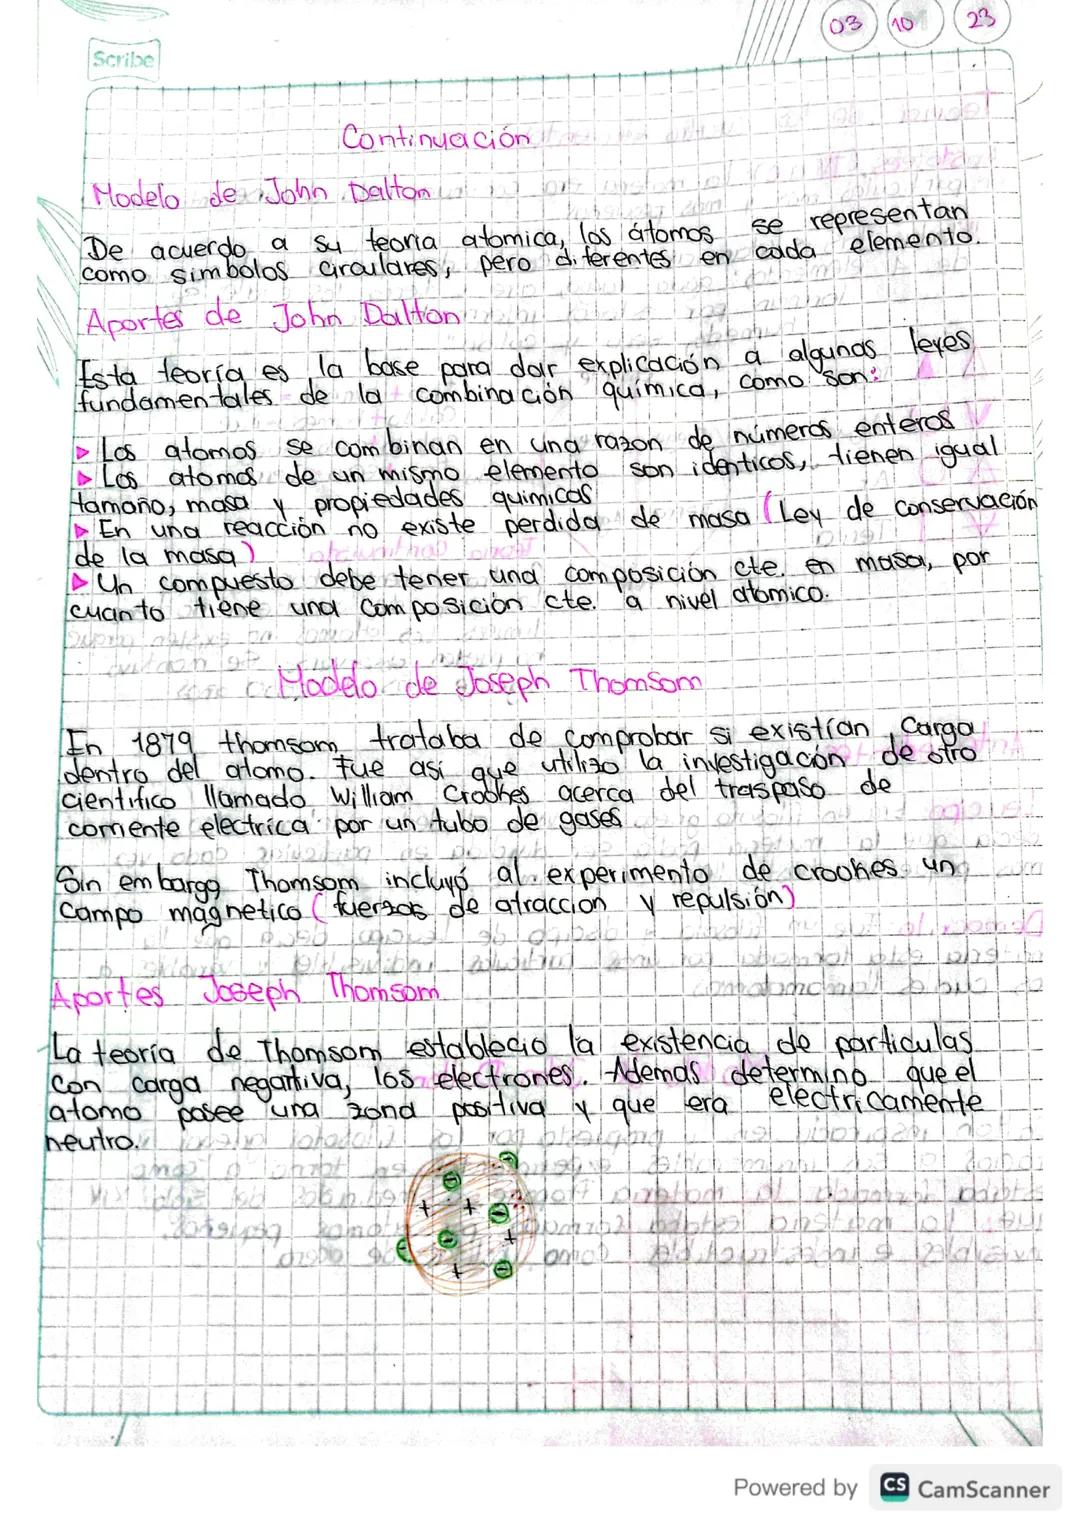 03 10 23
Scribe
Continuación
Modelo de John Dalton
De acuerdo a su teoria atomica, los átomos se representan
como simbolos circulares, pero diferentes en cada elemento.
Aportes de John Dalton
Esta teoría es la base para dar explicación a algunas leyes
fundamentales de la combinación química, como son:
▷ Los atomos se combinan en una razon de números enteros
▷ Los atomos de un mismo elemento son identicos, tienen igual
tamaño, masa y propiedades quimicas
▷ En una reacción no existe perdida de masa (Ley de conservación
de la masa)
▷ Un compuesto debe tener una composición cte. en masa, por
cuanto tiene una composición cte. a nivel atomico.
Modelo de Joseph Thomsom
En 1879 thomsom trataba de comprobar si existían carga
dentro del atomo. Fue asi que utilizo la investigación de otro
cientifico llamado William Crookes acerca del traspaso de
corriente electrica por un tubo de gases
Sin embargo Thomsom incluyó al experimento de crookes un
Campo magnetico (fuerzas de atraccion y repulsión)
Aportes Joseph Thomsom
La teoría de Thomsom establecio la existencia de particulas
con carga negativa, los electrones. Ademas determino que el
atomo posee una zona positiva y que era electricamente
neutro.
Powered by CS CamScanner